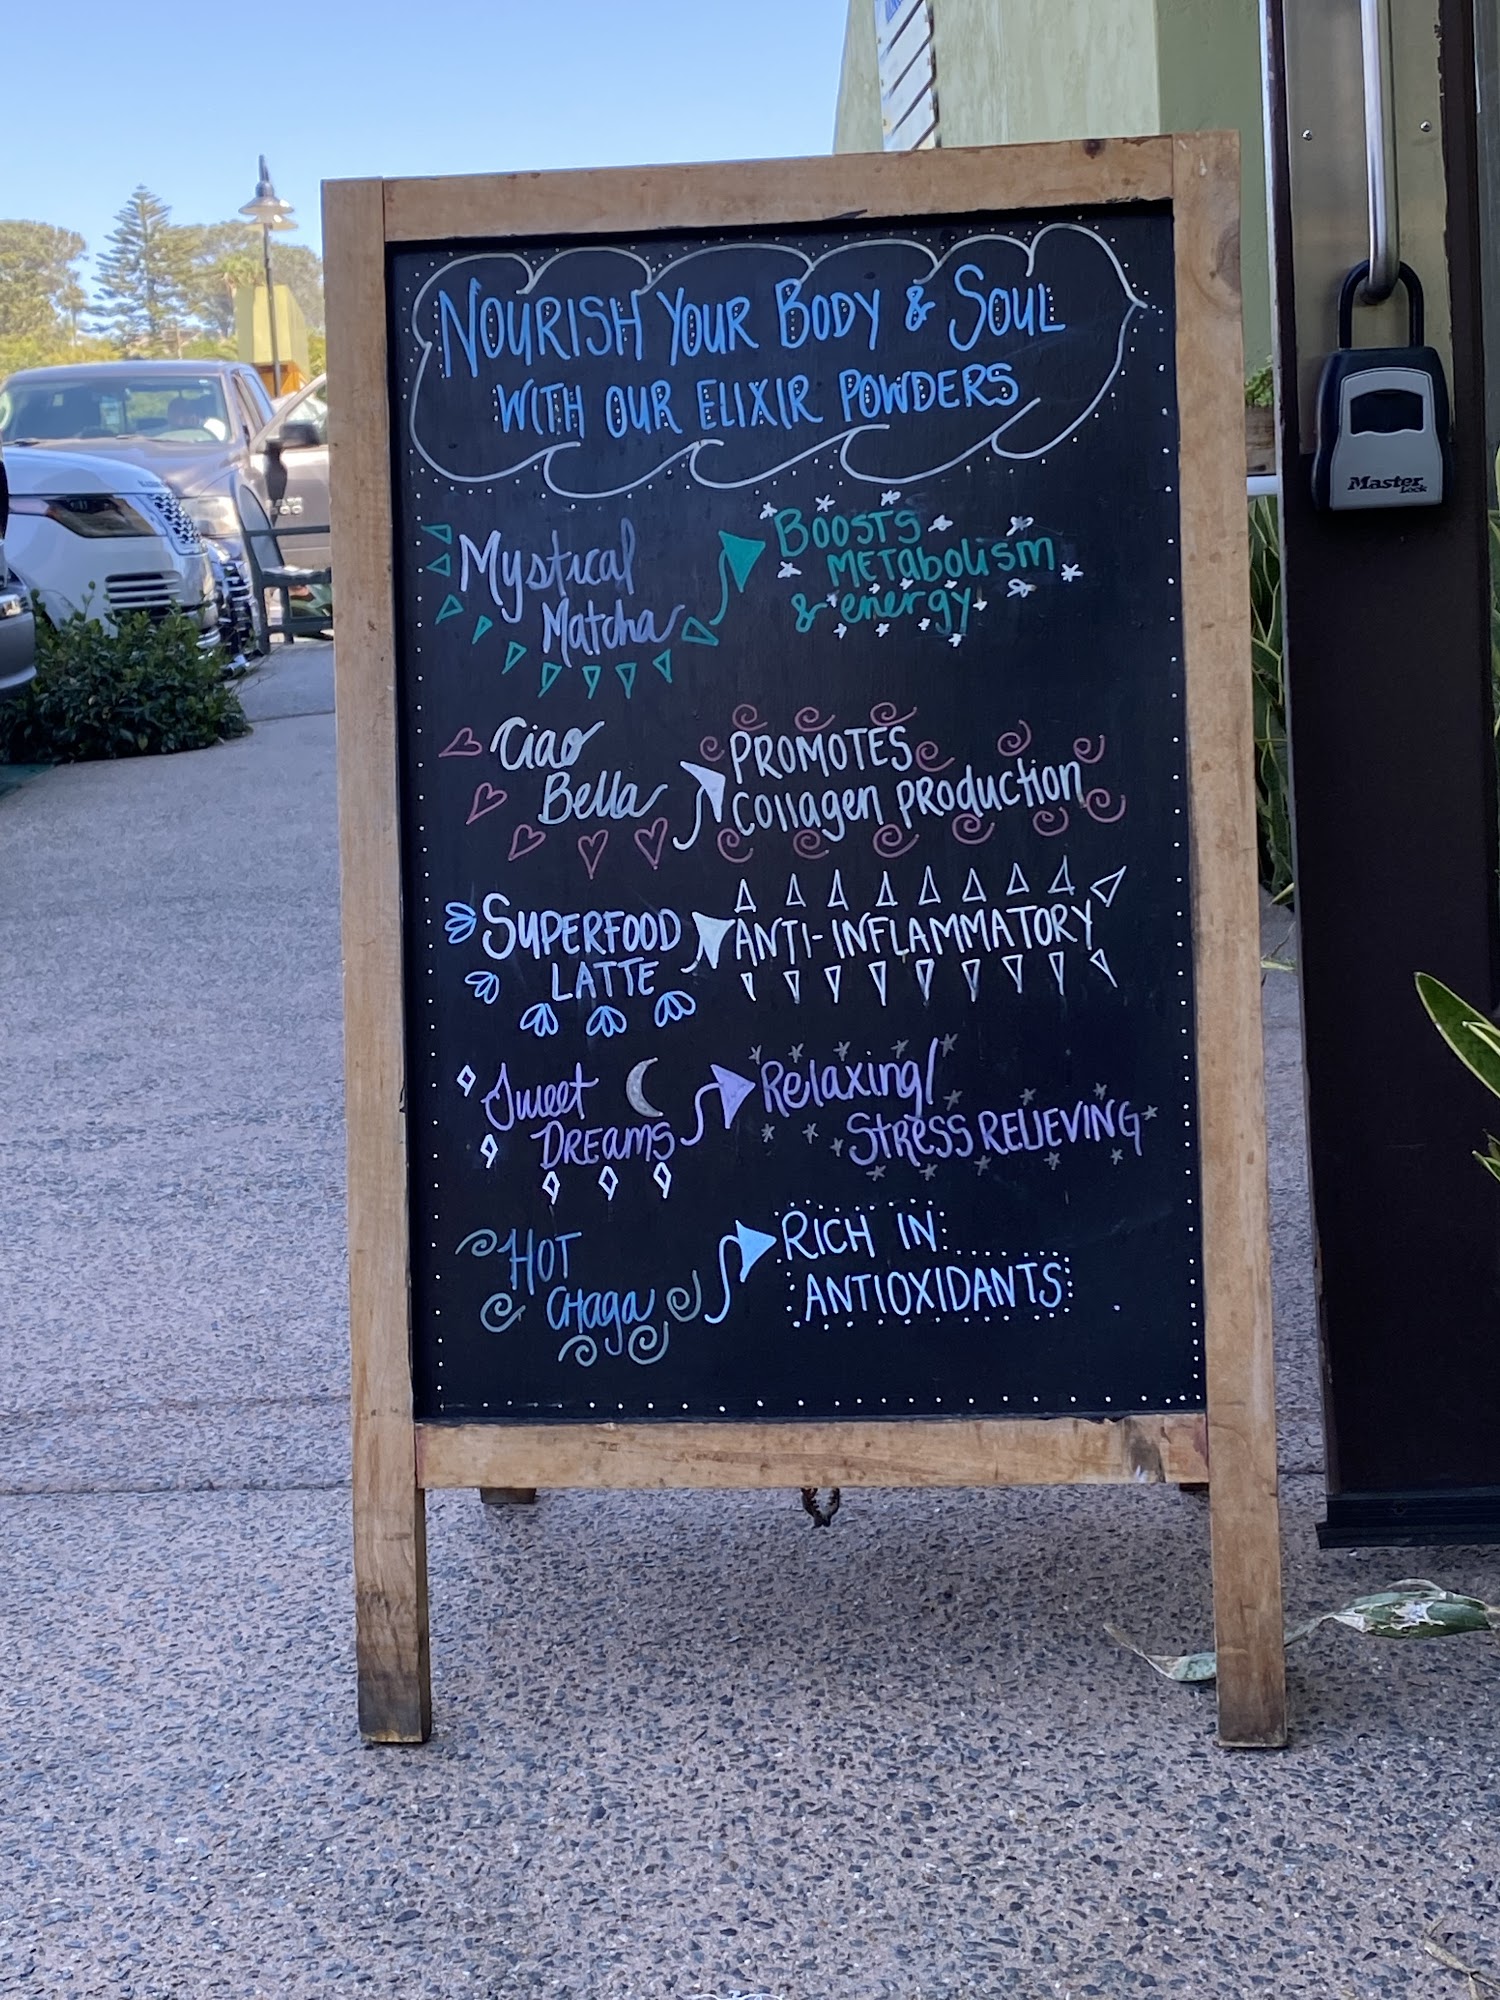 NOURISH YOUR BODY & SOUL
WITH OUR ELIXIR POWDERS
Mystical
Matcha
BOOSTS
METabolism
& energy
Ciao
Bella
PROMOTES
Collagen PRODUCTION
SUPERFOOD
LATTE
ANTI-INFLAMMATORY
Sweet
DREAMS
Relaxing/
STRESS RELIEVING
HOT
CHaga
RICH IN
ANTIOXIDANTS
Master
Lock